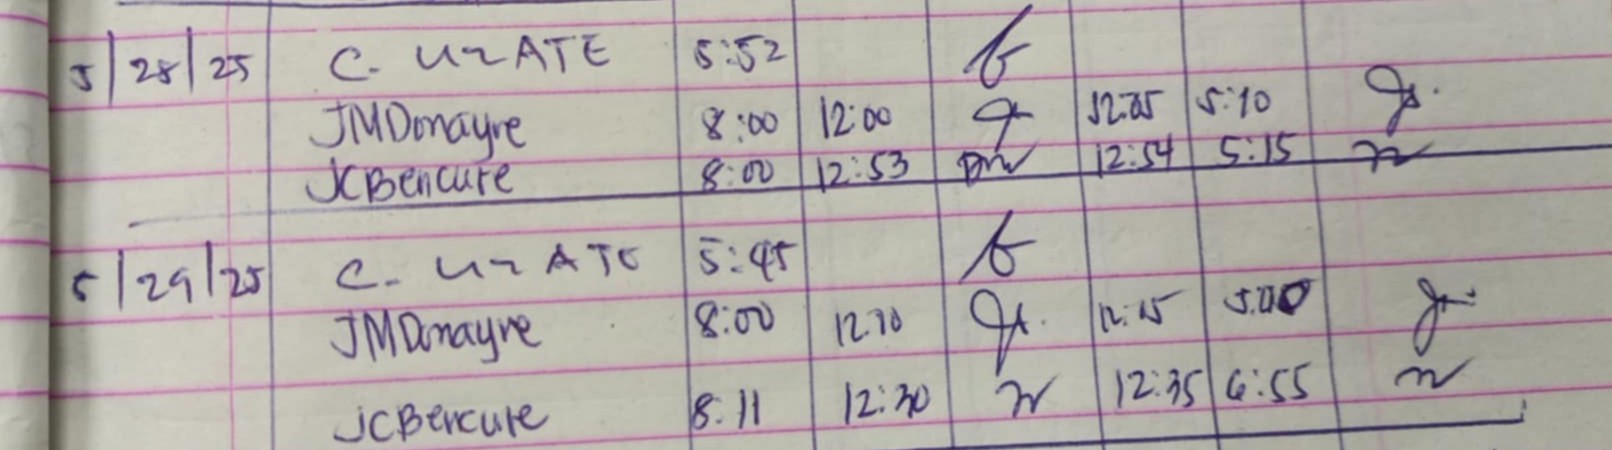 5/28/25 C. UzATE 5:52
JMDonayre 8:00 12:00 12:05 5:10
JCBencure 8:00 12:53 12:54 5:15
5/29/25 C. UzATE 5:45
JMDonayre 8:00 12:10 12:15 5:00
JCBencure 8:11 12:30 12:35 6:55